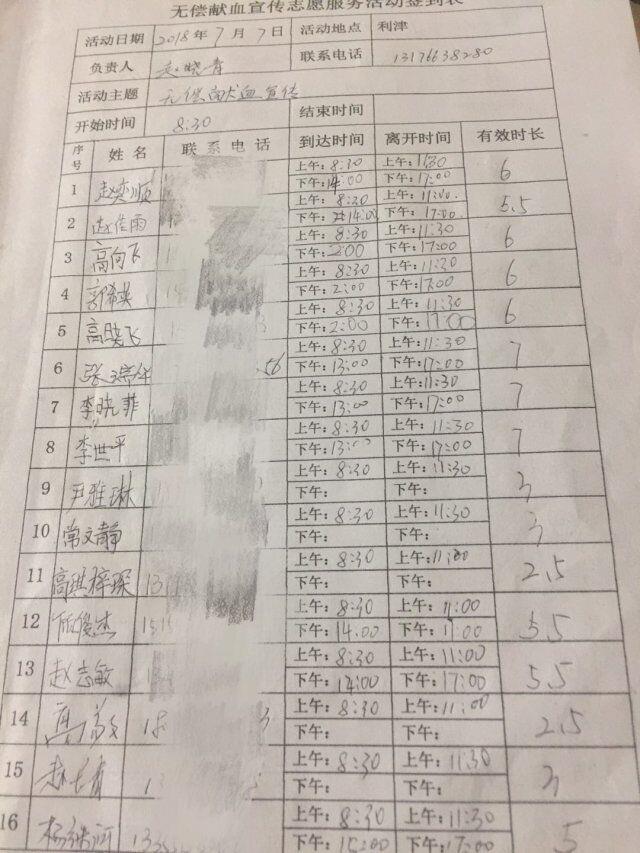 无偿献血宣传志愿服务活动签到表
活动日期 2018年7月7日 活动地点 利津
负责人 赵晓青 联系电话 13176638280
活动主题 无偿献血宣传
开始时间 8:30 结束时间
序号 姓名 联系电话 到达时间 离开时间 有效时长
1 赵奕顺 上午:8:30 上午:11:30 6
下午:14:00 下午:17:00
2 赵佳雨 上午:8:30 上午:11:00 5.5
下午:14:00 下午:17:00
3 高向飞 上午:8:30 上午:11:30 6
下午:2:00 下午:17:00
4 郭希英 上午:8:30 上午:11:30 6
下午:2:00 下午:17:00
5 高晓飞 上午:8:30 上午:11:30 6
下午:2:00 下午:17:00
6 上午:8:30 上午:11:30 7
下午:13:00 下午:17:00
7 李晓菲 上午:8:30 上午:11:30 7
下午:13:00 下午:17:00
8 李世平 上午:8:30 上午:11:30 7
下午:13:00 下午:17:00
9 尹雅琳 上午:8:30 上午:11:30 3
下午: 下午:
10 常文静 上午:8:30 上午:11:30 3
下午: 下午:
11 上午:8:30 上午:11:00 2.5
下午: 下午:
12 上午:8:30 上午:11:00 5.5
下午:14:00 下午:17:00
13 赵志敏 上午:8:30 上午:11:00 5.5
下午:14:00 下午:17:00
14 上午:8:30 上午:11:00 2.5
下午: 下午:
15 上午:8:30 上午:11:30 3
下午: 下午:
16 上午:8:30 上午:11:30 5
下午:15:00 下午:17:00